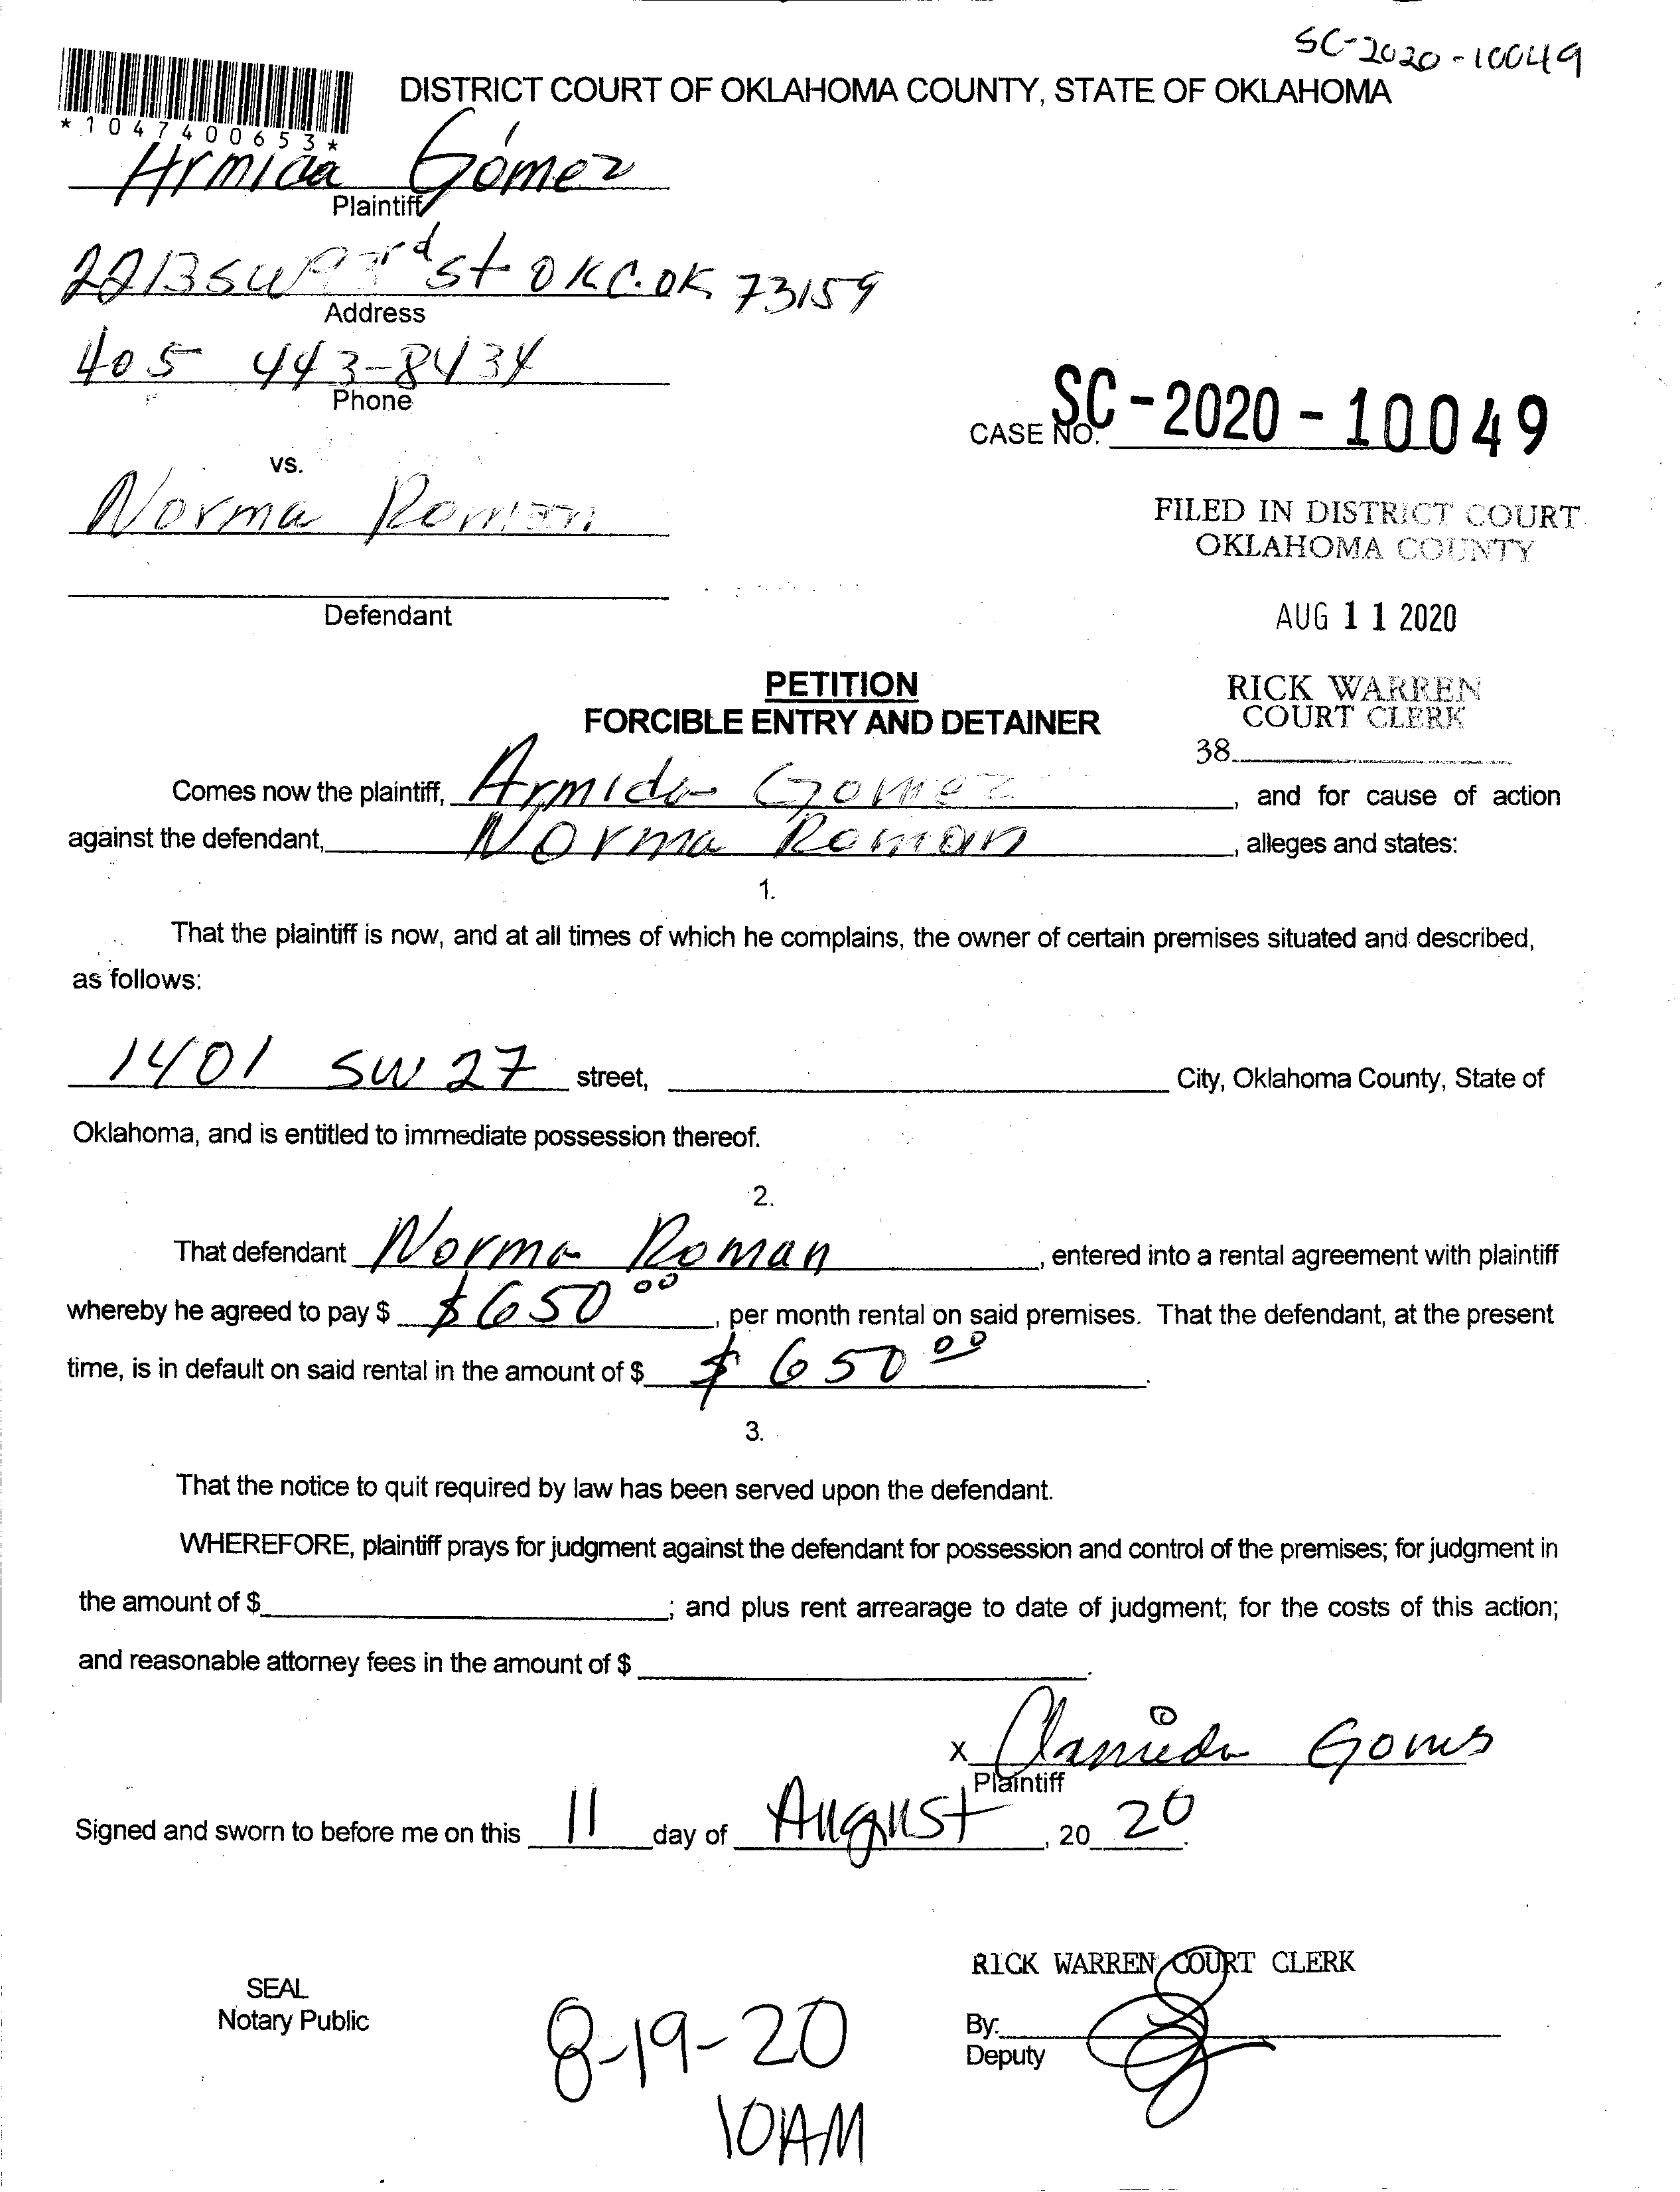 SC-2020-10049
DISTRICT COURT OF OKLAHOMA COUNTY, STATE OF OKLAHOMA
*1047400653*
Armida Gómez
Plaintiff
2213 SW 93rd St OKC. OK 73159
Address
405 443-8434
Phone
CASE NO. SC-2020-10049
vs.
Norma Roman
FILED IN DISTRICT COURT
OKLAHOMA COUNTY
Defendant
AUG 11 2020
PETITION
RICK WARREN
FORCIBLE ENTRY AND DETAINER
COURT CLERK
38
Comes now the plaintiff, Armida Gomez, and for cause of action
against the defendant, Norma Roman, alleges and states:
1.
That the plaintiff is now, and at all times of which he complains, the owner of certain premises situated and described,
as follows:
1401 SW 27 street, City, Oklahoma County, State of
Oklahoma, and is entitled to immediate possession thereof.
2.
That defendant Norma Roman, entered into a rental agreement with plaintiff
whereby he agreed to pay $ $650 00, per month rental on said premises. That the defendant, at the present
time, is in default on said rental in the amount of $ $650 00.
3.
That the notice to quit required by law has been served upon the defendant.
WHEREFORE, plaintiff prays for judgment against the defendant for possession and control of the premises; for judgment in
the amount of $; and plus rent arrearage to date of judgment; for the costs of this action;
and reasonable attorney fees in the amount of $.
X Armida Gomes
Plaintiff
Signed and sworn to before me on this 11 day of August, 20 20.
RICK WARREN COURT CLERK
SEAL
Notary Public
By:
Deputy
8-19-20
10AM